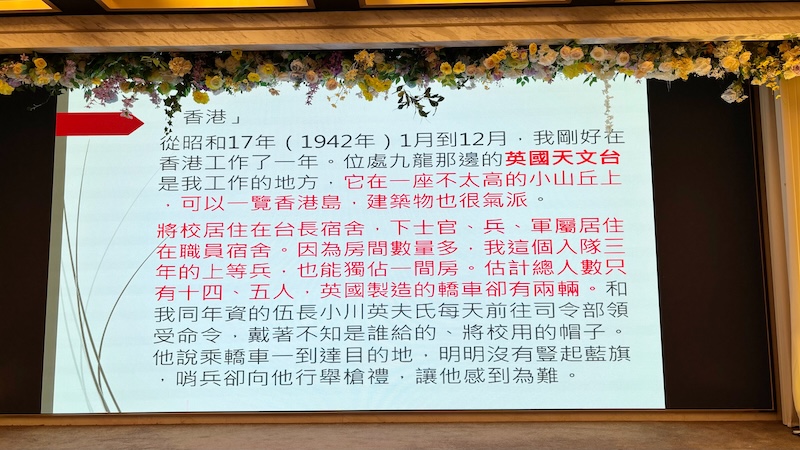 香港」
從昭和17年（1942年）1月到12月，我剛好在
香港工作了一年。位處九龍那邊的英國天文台
是我工作的地方，它在一座不太高的小山丘上
，可以一覽香港島，建築物也很氣派。
將校居住在台長宿舍，下士官、兵、軍屬居住
在職員宿舍。因為房間數量多，我這個入隊三
年的上等兵，也能獨佔一間房。估計總人數只
有十四、五人，英國製造的轎車卻有兩輛。和
我同年資的伍長小川英夫氏每天前往司令部領
受命令，戴著不知是誰給的、將校用的帽子。
他說乘轎車一到達目的地，明明沒有豎起藍旗
，哨兵卻向他行舉槍禮，讓他感到為難。